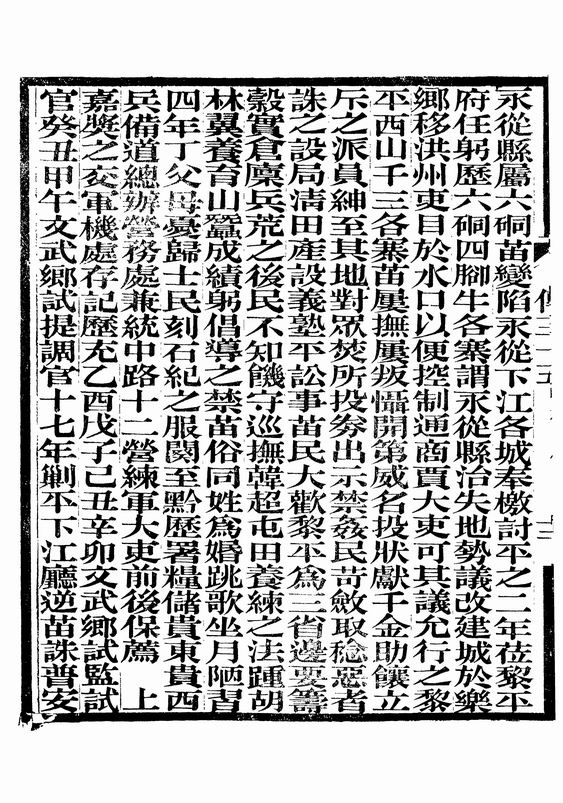 永從縣屬六硐苗變陷永從下江各城奉檄討平之二年莅黎平
府任躬歷六硐四腳牛各寨謂永從縣治失地勢議改建城於樂
鄉移洪州吏目於水口以便控制通商賈大吏可其議允行之黎
平西山千三各寨苗屢撫屢叛懾開第威名投狀獻千金助饟立
斥之派員紳至其地對眾焚所投劵出示禁姦民苛斂取稔惡者
誅之設局清田產設義塾平訟事苗民大歡黎平為三省邊要籌
穀實倉廩兵荒之後民不知饑守巡撫韓超屯田養練之法踵胡
林翼養育山蠶成績躬倡導之禁苗俗同姓為婚跳歌坐月陋習
四年丁父母憂歸士民刻石紀之服闋至黔歷署糧儲貴東貴西
兵備道總辦營務處兼統中路十二營練軍大吏前後保薦　上
嘉獎之交軍機處存記歷充乙酉戊子己丑辛卯文武鄉試監試
官癸丑甲午文武鄉試提調官十七年剿平下江廳逆苗誅普安